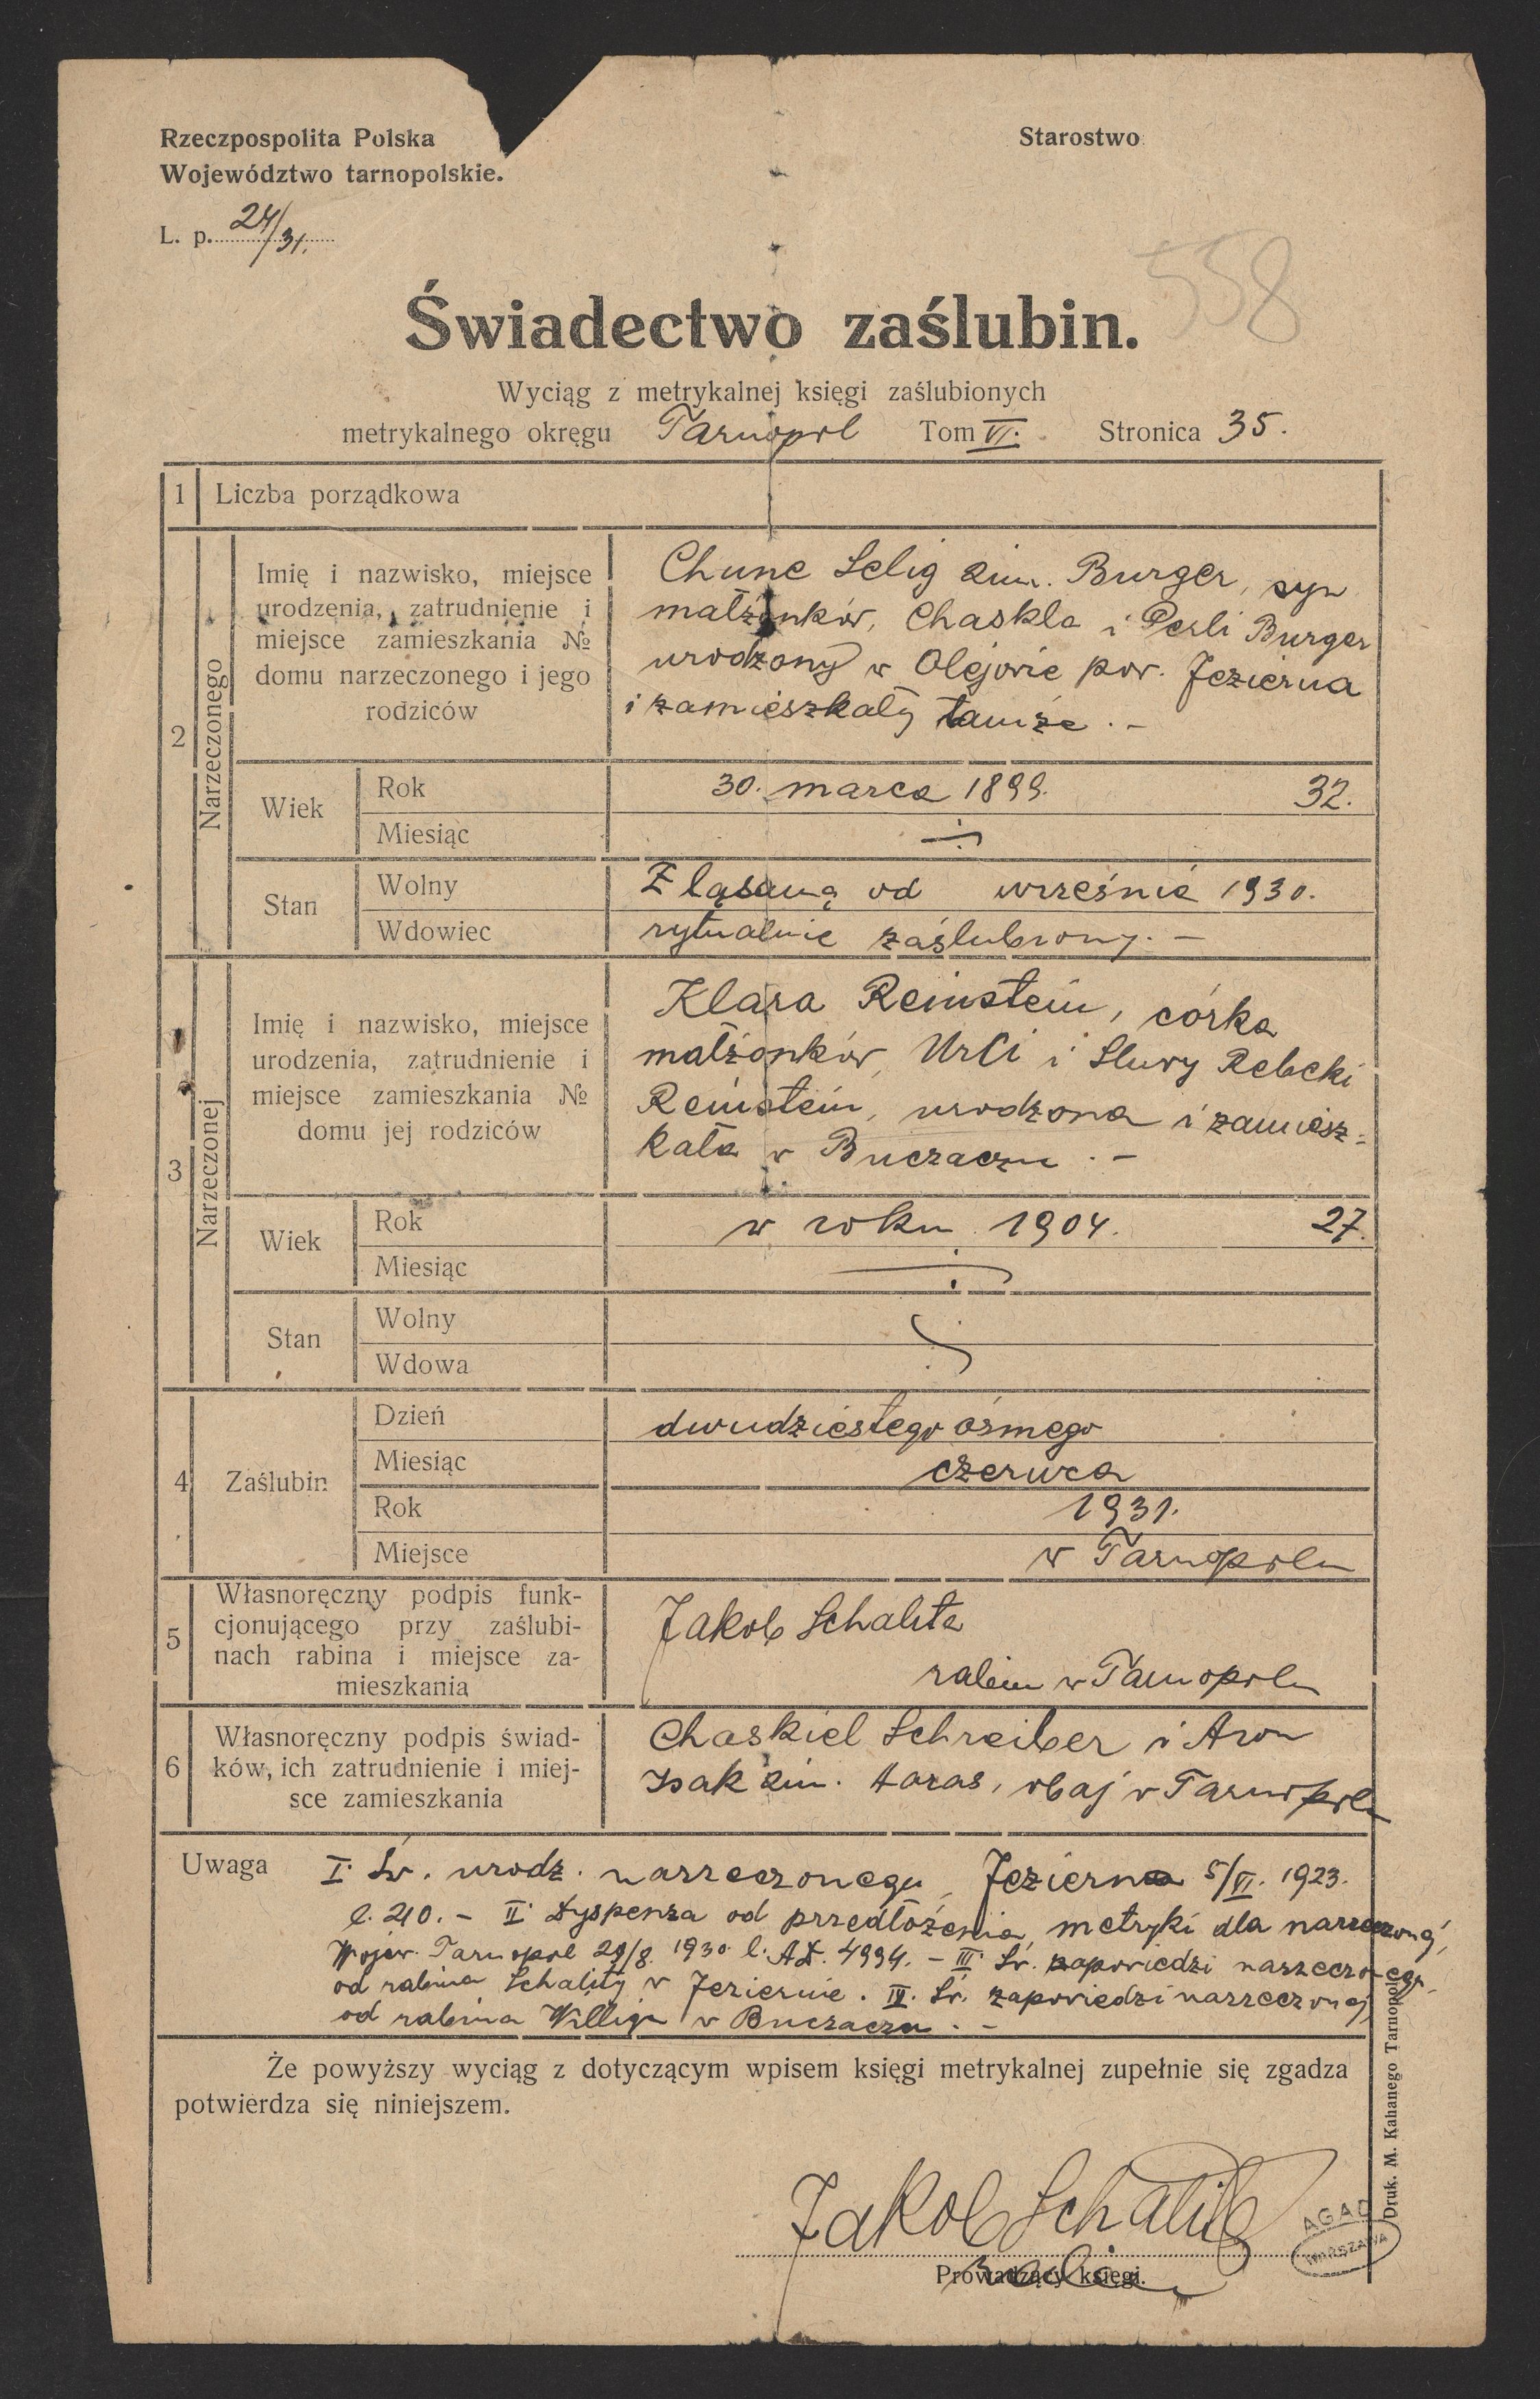 Rzeczpospolita Polska
Województwo tarnopolskie.
Starostwo
L. p. 24/31.
558
Świadectwo zaślubin.
Wyciąg z metrykalnej księgi zaślubionych
metrykalnego okręgu Tarnopol Tom VI. Stronica 35.
1 Liczba porządkowa
2
Narzeczonego
Imię i nazwisko, miejsce
urodzenia, zatrudnienie i
miejsce zamieszkania №
domu narzeczonego i jego
rodziców
Chune Selig 2im. Burger, syn
małżonków, Chaskla i Perli Burger
urodzony w Olejowie pow. Jezierna
i zamieszkały tamże . –
Wiek
Rok 30. marca 1899. 32.
Miesiąc
Stan
Wolny Z od wrześnie 1930.
Wdowiec rytualnie zaślubiony. –
3
Narzeczonej
Imię i nazwisko, miejsce
urodzenia, zatrudnienie i
miejsce zamieszkania №
domu jej rodziców
Klara Reinstein, córka
małżonków, i Rebeki
Reinstein, urodzona i zamiesz=
kała w Buczaczu . –
Wiek
Rok w roku 1904. 27.
Miesiąc
Stan
Wolny
Wdowa
4 Zaślubin
Dzień dwudziestego ósmego
Miesiąc czerwca
Rok 1931.
Miejsce w Tarnopolu
5
Własnoręczny podpis funk-
cjonującego przy zaślubi-
nach rabina i miejsce za-
mieszkania
Jakob Schalita
rabin w Tarnopolu
6
Własnoręczny podpis świad-
ków, ich zatrudnienie i miej-
sce zamieszkania
Chaskiel Schreiber i Aron
Isak 2im. , obaj w Tarnopolu
Uwaga I. Św. urodz. narzeczonego, Jezierna 5/VI. 1923.
l. 210. – II. Dyspenza od przedłożenia metryki dla narzeczonej,
Wojew. Tarnopol 29/8. 1930. l. AD. 4994. – III. Św. zapowiedzi narzeczonego
od rabina Schality w Jeziernie. IV. Św. zapowiedzi narzeczonej
od rabina Williga w Buczaczu . –
Że powyższy wyciąg z dotyczącym wpisem księgi metrykalnej zupełnie się zgadza
potwierdza się niniejszem.
Jakob Schalita
rabin
Prowadzący księgi.
AGAD
WARSZAWA
Druk. M. Kahanego Tarnopol